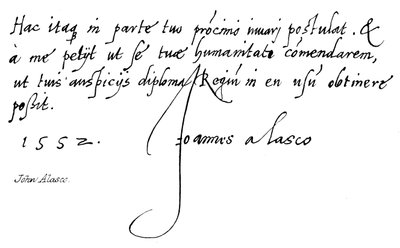 Hac itaq in parte tuo prócinio iuuarj postulat. &
à me petijt ut se tuæ humanitati cómendarem,
ut tuis auspicijs diploma Regiū in eū usū obtinere
possit.
1552. Joannes a Lasco
John Alasco.